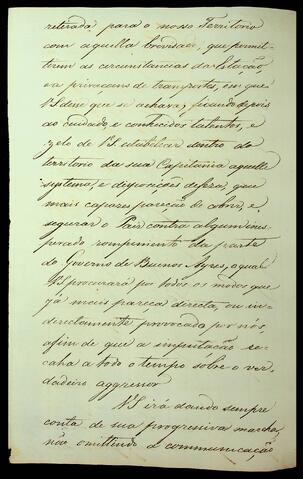 retirada para o nosso Territorio
com aquella brevidade, que permit-
tirem as circunstancias da Estação,
e a privacam de transportes, em que
VS disse que se achava; ficando depois
ao cuidado, e conhecidos talentos, e
zelo de VS. estabelecer dentro do
territorio da sua Capitania aquelle
systema, e disposições defeza, que
mais capazes pareção de cobrir, e
segurar o Paiz contra algum ines-
perado rompimento da parte
do Governo de Buenos Ayres, o qual
VS procurará por todos os modos que
já mais pareça directa, ou in-
directamente provocada por nós,
afim de que a imputação re-
caha a todo o tempo sobre o ver-
dadeiro aggressor
VS irá dando sempre
conta de sua progressiva marcha,
não omittindo a communicação